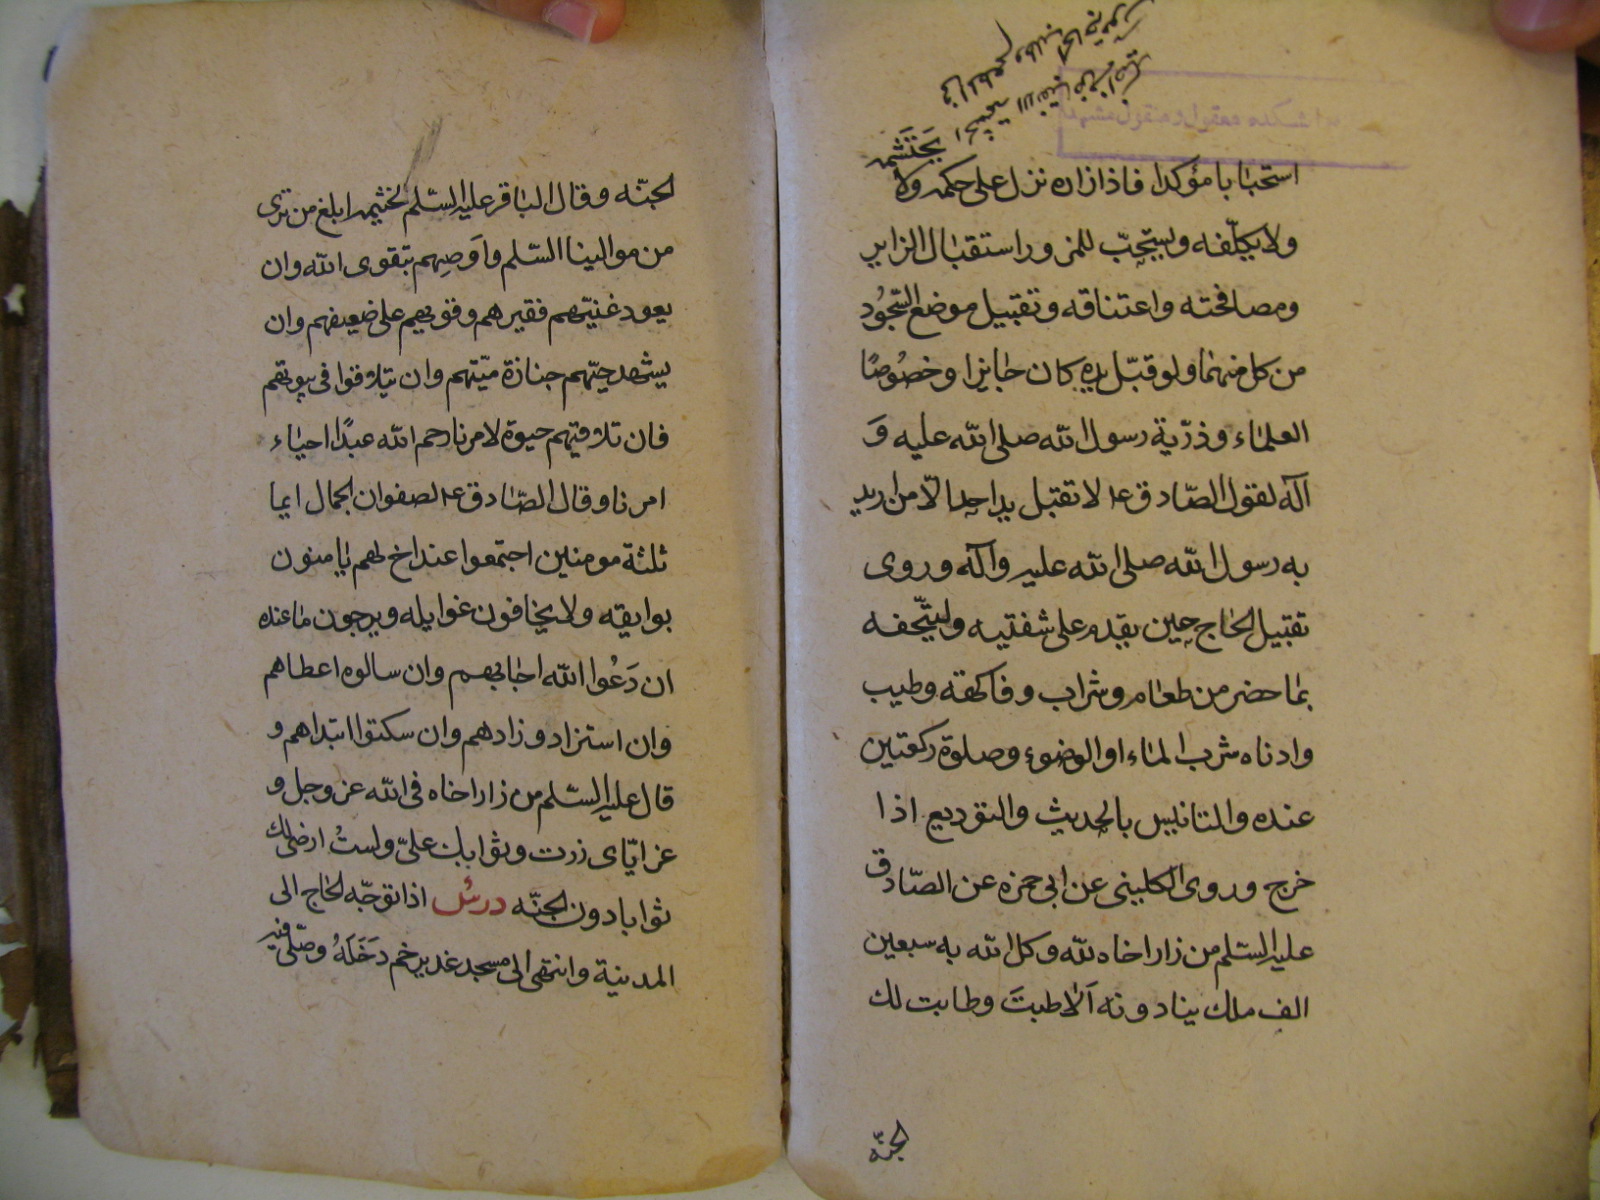 استحبابا مؤكدا فاذا زاره نزل على حكمه ولا
يحتشمه
ولا يكلّفه ويستحبّ للمزور استقبال الزاير
ومصافحته واعتناقه وتقبيل موضع السّجُود
من كل منهما ولو قبّل يده كان جايزا وخصُوصًا
العلماء وذرّية رسول الله صلى الله عليه وَ
آله لقول الصّادق ع لا تقبل يد احد الّا من اريد
به رسول الله صلى الله عليه وآله وروى
تقبيل الحاج حين يقدم على شفتيه وليتّحفه
بما حضر من طعام وشراب وفاكهة وطيب
وادناه شرب الماء او الوضوء وصلوة ركعتين
عنده والتانيس بالحديث والتوديع اذا
خرج وروى الكلينى عن ابى حمزه عن الصّادق
عليه السّلم من زار اخاه لله وكل الله به سبعين
الف ملك ينادونه اَلا طبتَ وطابت لك
الجنّه
الجنّه وقال الباقر عليه السّلم لخثيمه ابلغ من ترى
من موالينا السّلم واَوصِهم بتقوى الله وان
يعود غنيّهم فقيرهم وقويهم على ضعيفهم وان
يشهد حيّهم جنازة ميّتهم وان يتلاقوا فى بيوتهم
فان تلاقيهم حيوة لامرنا رحم الله عبدًا احياء
امرنا وقال الصّادق ع لصفوان الجمال ايما
ثلثة مومنين اجتمعوا عند اخ لهم يامنون
بوايقه ولا يخافون غوايله ويرجون ما عنده
ان دَعُوا الله اجابهم وان سالوه اعطاهم
وان استزادو زادهم وان سكتوا ابتداهم و
قال عليه السّلم من زار اخاه فى الله عز وجل و
عز ايّاى زرت وثوابك علىّ ولستُ ارضى لك
ثوابا دون الجنّه درسٌ اذا توجّه الحاج الى
المدينة وانتهى الى مسجد غدير خم دَخَلَهُ وصلّى فيه